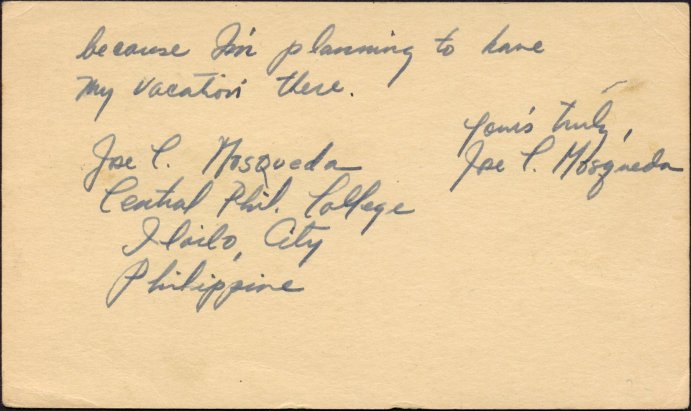 because I'm planning to have
my vacation there.
Yours truly,
Jose C. Mosqueda
Jose C. Mosqueda
Central Phil. College
Iloilo, City
Philippine